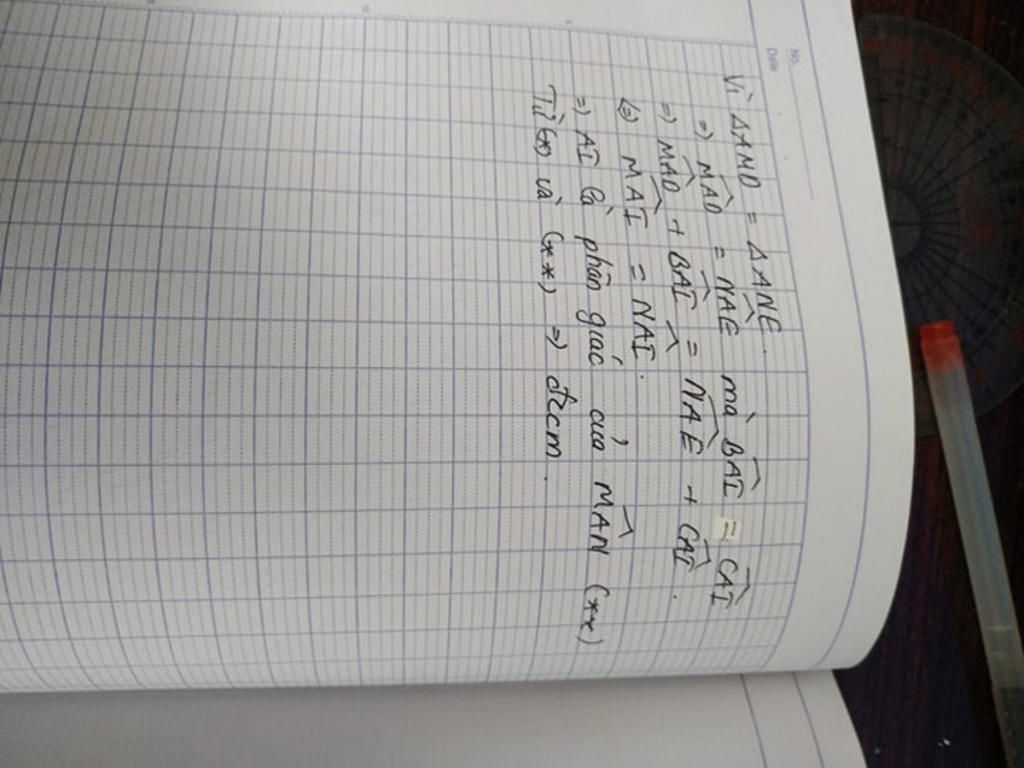 No.
Date
Vì ΔAMD = ΔANE.
⇒ \widehat{MAD} = \widehat{NAE} mà \widehat{BAI} = \widehat{CAI}
⇒ \widehat{MAD} + \widehat{BAI} = \widehat{NAE} + \widehat{CAI}.
(=) \widehat{MAI} = \widehat{NAI}.
⇒ AI là phân giác của \widehat{MAN} (**)
Từ (*) và (**) ⇒ đfcm.